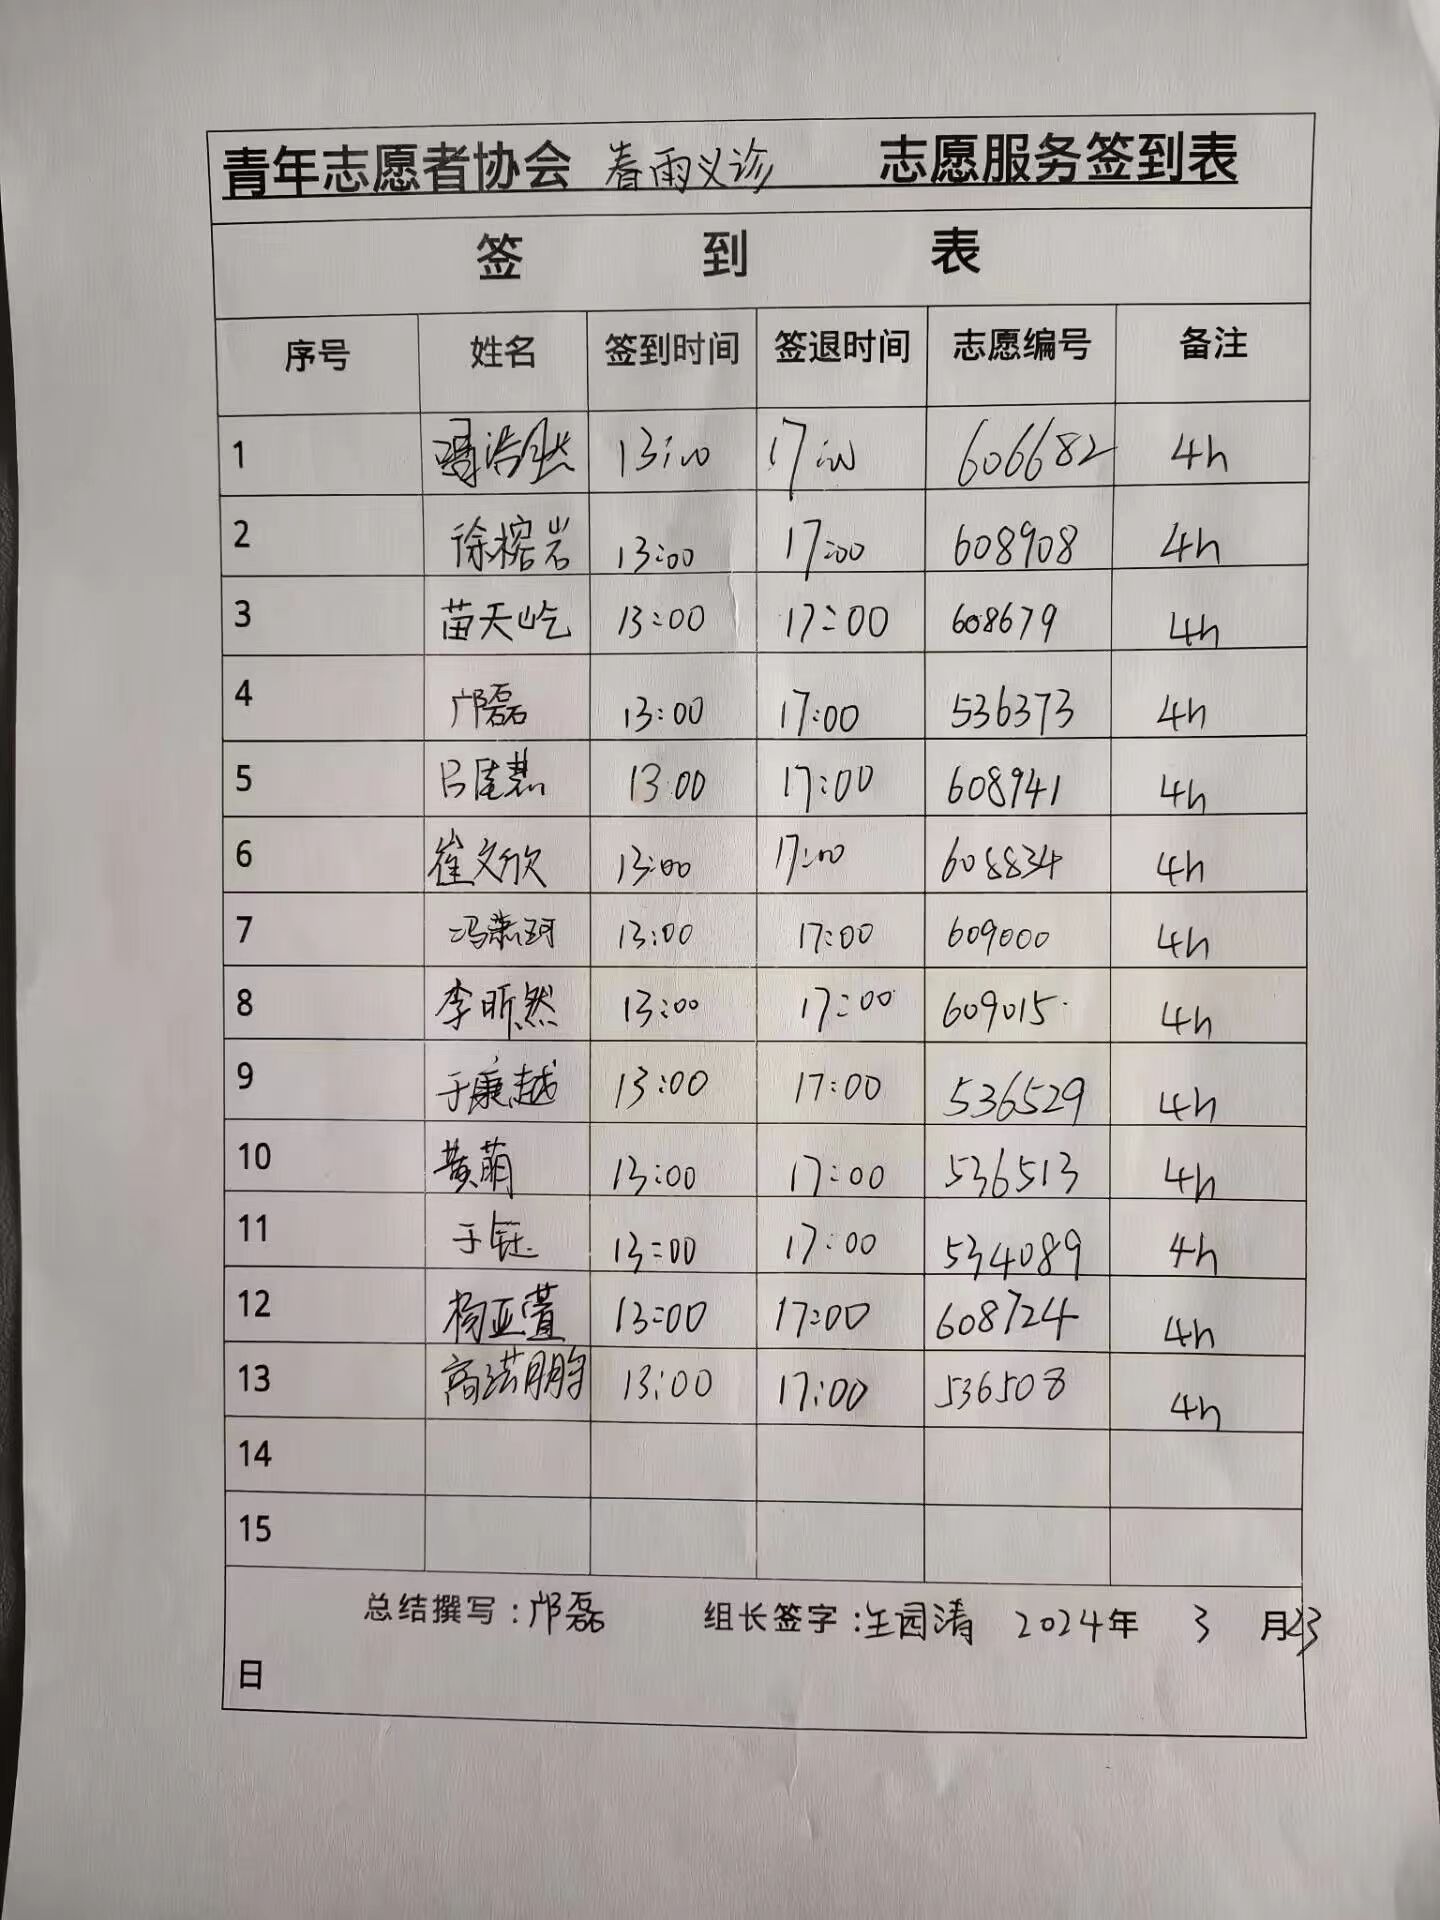 青年志愿者协会 春雨义诊 志愿服务签到表
签 到 表
序号 姓名 签到时间 签退时间 志愿编号 备注
1 冯浩然 13:00 17:00 606682 4h
2 徐榕岩 13:00 17:00 608908 4h
3 苗天屹 13:00 17:00 608679 4h
4 邝磊 13:00 17:00 536373 4h
5 吕佳慧 13:00 17:00 608941 4h
6 崔文欣 13:00 17:00 608834 4h
7 冯 珂 13:00 17:00 609000 4h
8 李昕然 13:00 17:00 609015 4h
9 于康越 13:00 17:00 536529 4h
10 黄萌 13:00 17:00 536513 4h
11 于钰 13:00 17:00 534089 4h
12 杨亚萱 13:00 17:00 608724 4h
13 高 鹏 13:00 17:00 536508 4h
14
15
总结撰写：邝磊 组长签字：王园清 2024年 3 月23
日